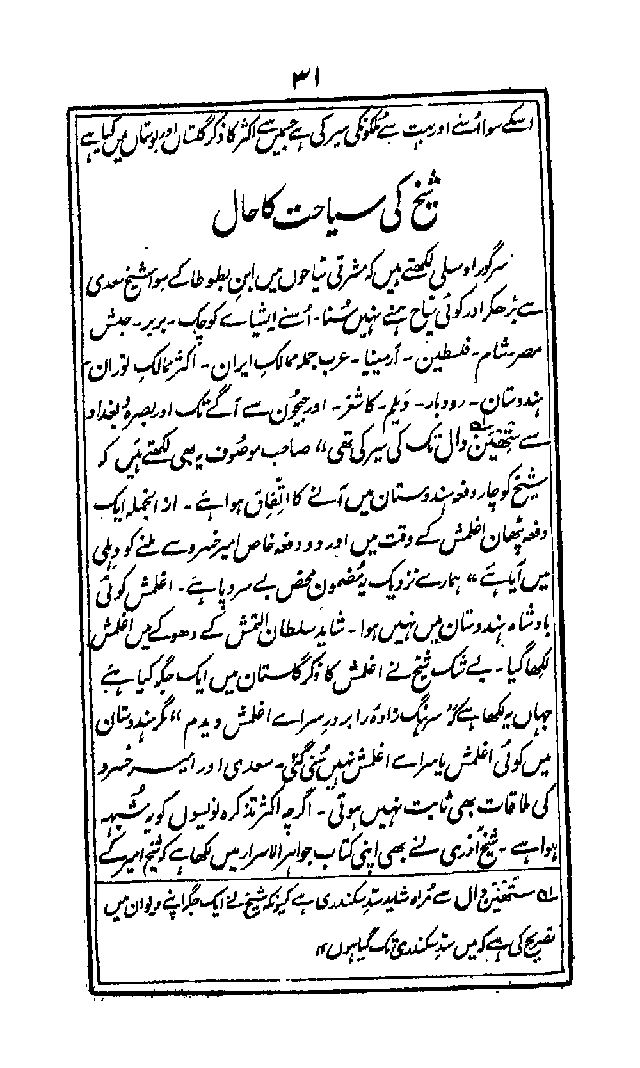 ۳۱
اسکے سوا اُسنے اور بہت سے ملکونکی سیر کی ہے جسمیں سے اکثر کا ذکر گلستاں اور بوستاں میں کیا ہے
شیخ کی سیاحت کا حال
سرگور اوسلی لکھتے ہیں کہ مشرقی سیّاحوں میں ابن بطوطا کے سوا شیخ سعدی
سے بڑھکر اور کوئی سیّاح ہمنے نہیں سُنا۔ اُسنے ایشیاے کوچک۔ بربر۔ حبش
مصر۔ شام۔ فلسطین۔ آرمینیا۔ عرب جملہ ممالک ایران۔ اکثر ممالک توران
ہندوستان۔ رودبار۔ دیلم۔ کاشغر۔ اور جیحون سے آگے تک اور بصرہ و بغداد
سے ستھین وال تک کی سیر کی تھی" صاحب موصوف یہ بھی لکھتے ہیں کہ
شیخ کو چار دفعہ ہندوستان میں آنے کا اتفاق ہوا ہے۔ از انجملہ ایک
دفعہ پٹھان اغلمش کے وقت میں اور دو دفعہ خاص امیر خسرو سے ملنے کو دہلی
میں آیا ہے" ہمارے نزدیک یہ مضمون محض بے سروپا ہے۔ اغلمش کوئی
بادشاہ ہندوستان میں نہیں ہوا۔ شاید سلطان التمش کے دھوکے میں اغلمش
لکھا گیا۔ بے شک شیخ نے اغلمش کا ذکر گلستان میں ایک جگہ کیا ہے
جہاں یہ لکھا ہے "سرہنگ زادہ را بر در سراے اغلمش دیدم" مگر ہندوستان
میں کوئی اغلمش یا سراے اغلمش نہیں سُنی گئی۔ سعدی اور امیر خسرو
کی ملاقات بھی ثابت نہیں ہوتی۔ اگرچہ اکثر تذکرہ نویسوں کو یہ شُبہہ
ہوا ہے۔ شیخ آذری نے بھی اپنی کتاب جواہر الاسرار میں لکھا ہے کہ شیخ امیر کے
لہ ستھین وال سے مُراد شاید سدِّ سکندری ہے کیونکہ شیخ نے ایک جگہ اپنے دیوان میں
تصریح کی ہے کہ میں سدِّ سکندری تک گیا ہوں"